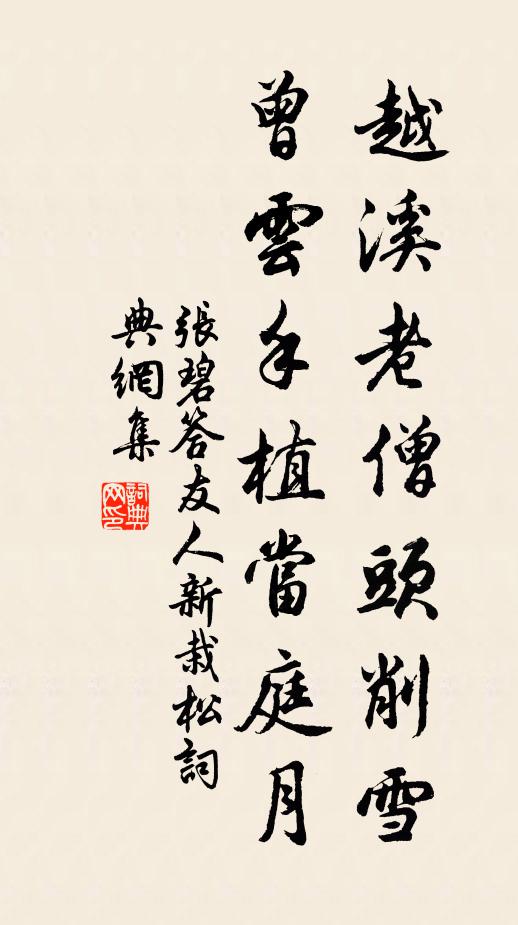 越溪老僧頭削雪
曾雲手植當庭月
張碧答友人新栽松詞
典網集
詞典網印